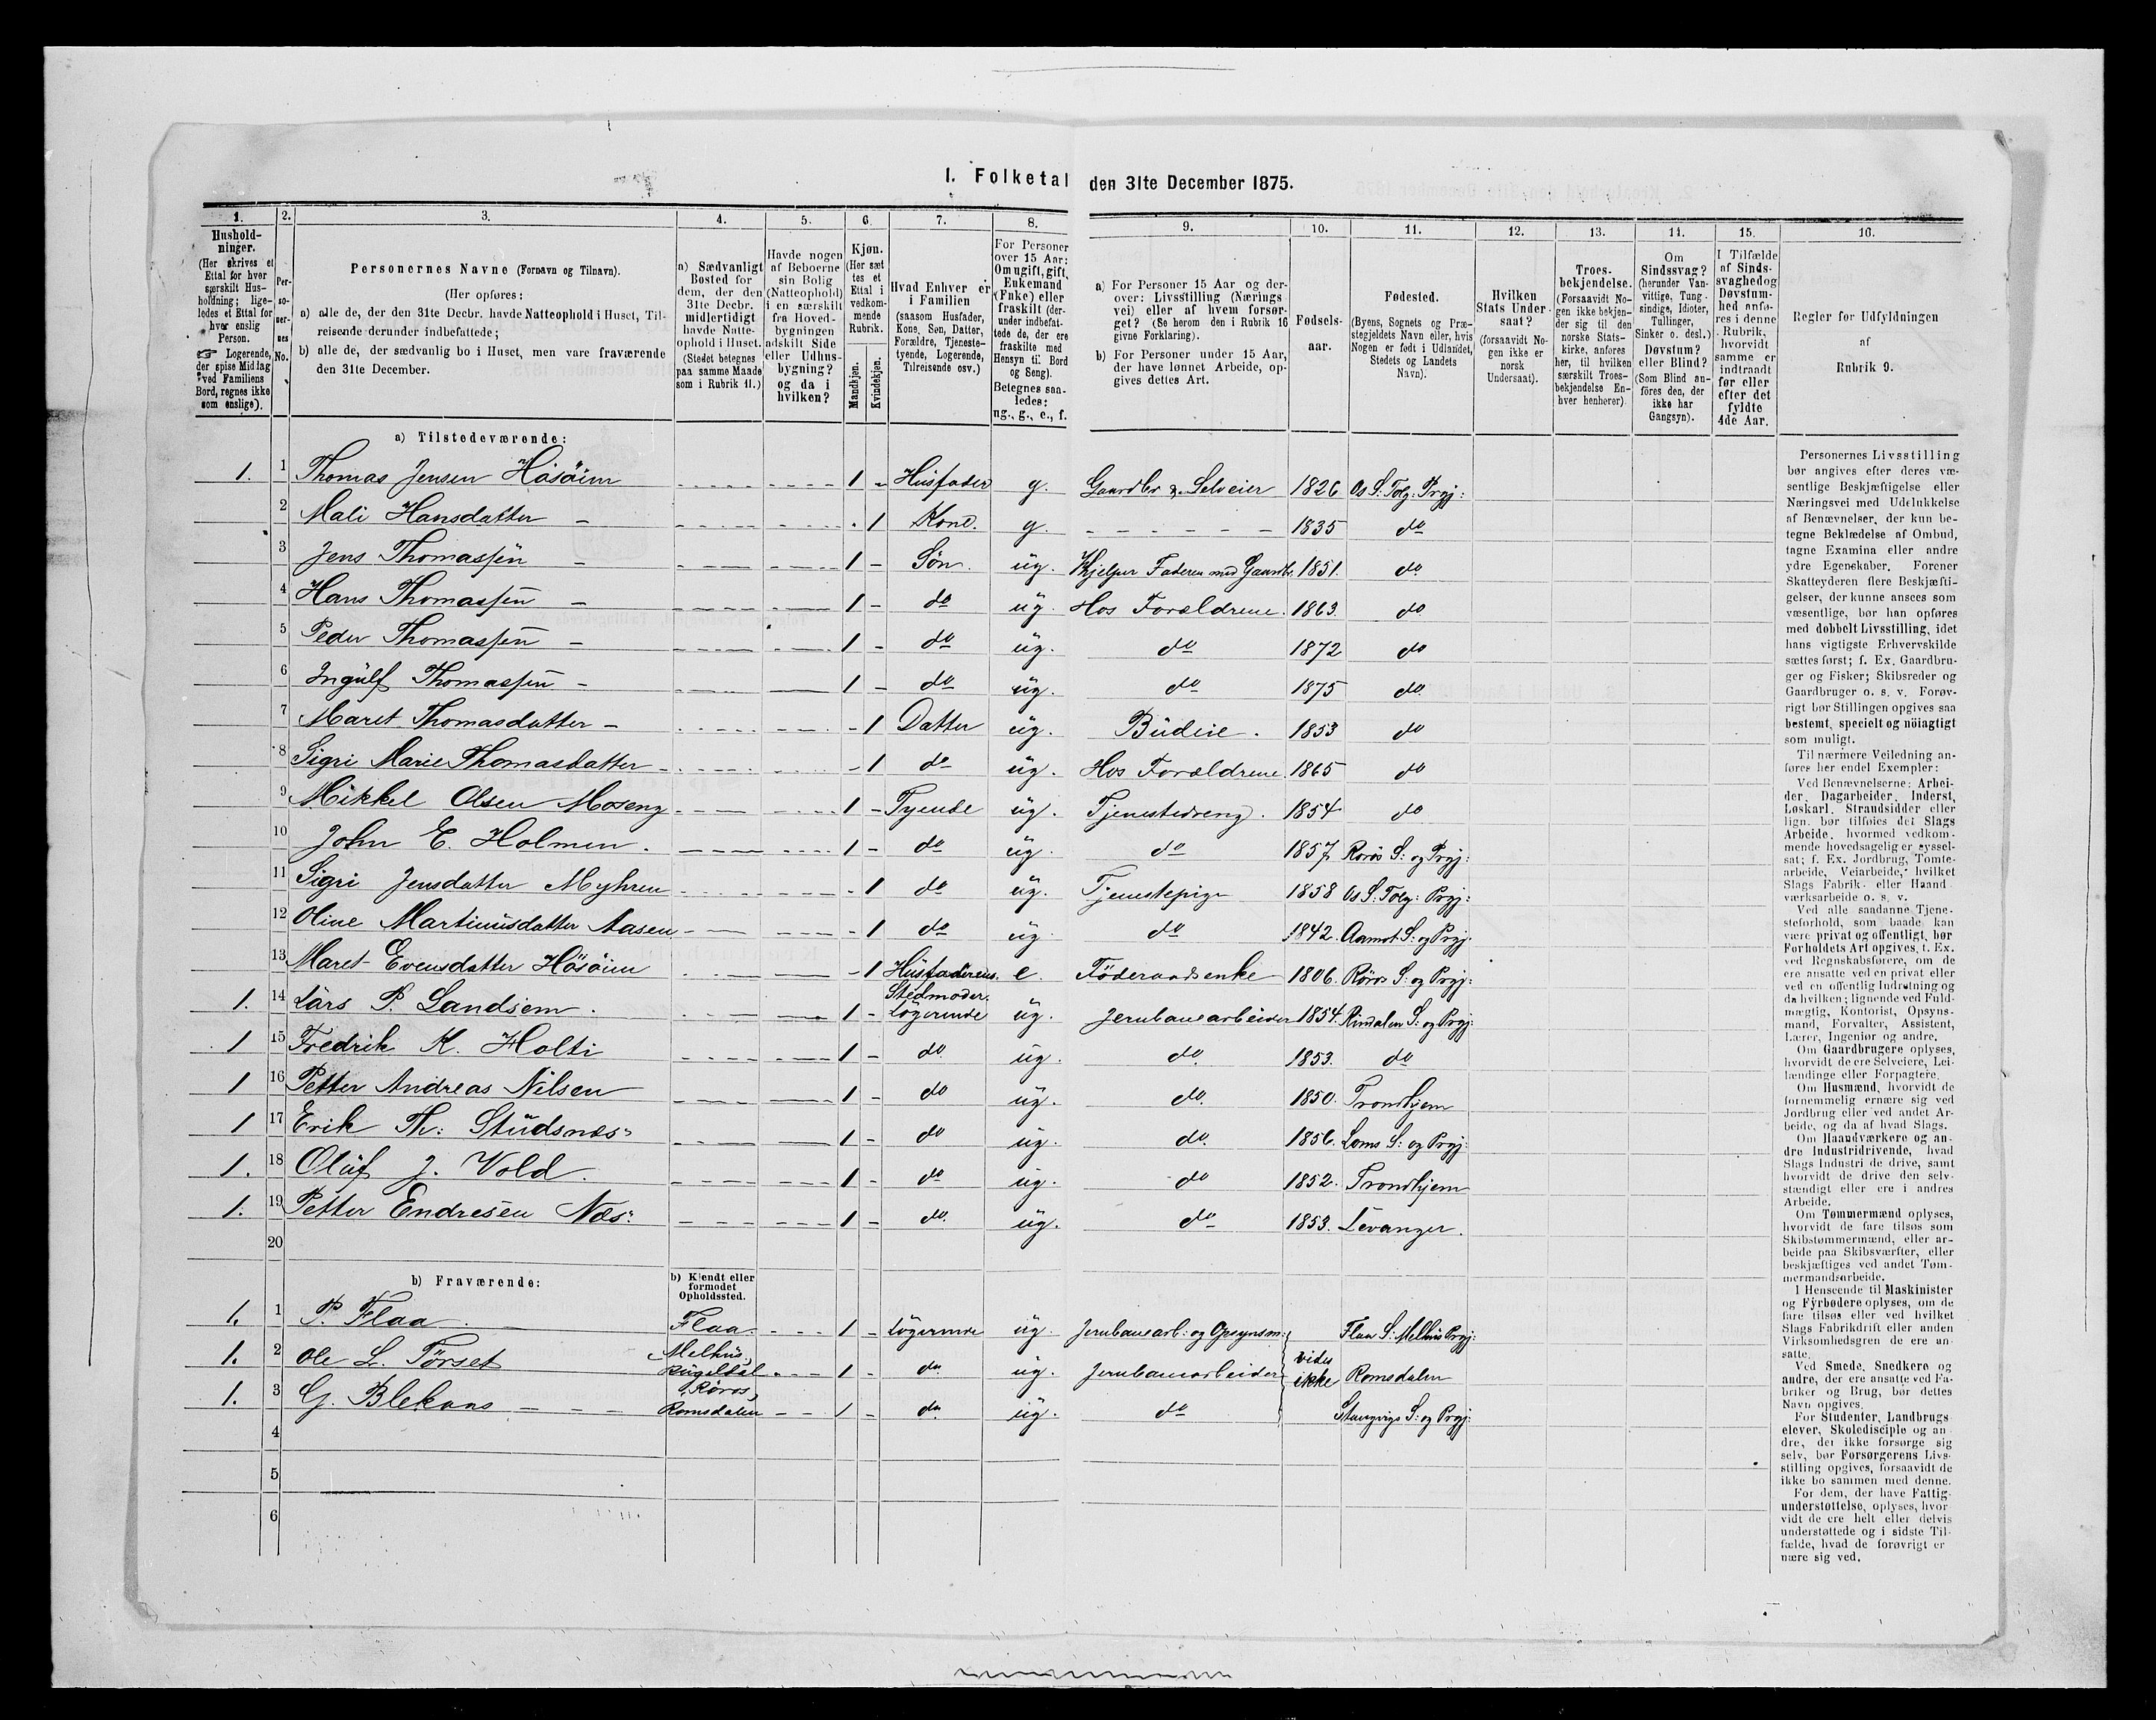 I. Folketal den 31te December 1875.
1. 2. 3. 4. 5. 6. 7. 8. 9. 10. 11. 12. 13. 14. 15. 16.
Husholdninger. (Her skrives et Ettal for hver særskilt Husholdning; ligeledes et Ettal for hver enslig Person. Logerende, der spise Middag ved Familiens Bord, regnes ikke som enslige).
Personernes No.
Personernes Navne (Fornavn og Tilnavn).
(Her opføres:
a) alle de, der den 31te Decbr. havde Natteophold i Huset, Tilreisende derunder indbefattede;
b) alle de, der sædvanlig bo i Huset, men vare fraværende den 31te December.
a) Sædvanligt Bosted for dem, der den 31te Decbr. midlertidigt havde Natteophold i Huset. (Stedet betegnes paa samme Maade som i Rubrik 11.)
Havde nogen af Beboerne sin Bolig (Natteophold) i en særskilt fra Hovedbygningen adskilt Side eller Udhusbygning? og da i hvilken?
Kjøn. (Her sættes et Ettal i vedkommende Rubrik.
Mandkjøn. Kvindekjøn.
Hvad Enhver er i Familien (saasom Husfader, Kone, Søn, Datter, Forældre, Tjenestetyende, Logerende, Tilreisende osv.)
For Personer over 15 Aar: Om ugift, gift, Enkemand (Enke) eller fraskilt (derunder indbefattede de, der ere fraskilte med Hensyn til Bord og Seng). Betegnes saaledes: ug., g., e., f.
a) For Personer 15 Aar og derover: Livsstilling (Næringsvei) eller af hvem forsørget? (Se herom den i Rubrik 16 givne Forklaring).
b) For Personer under 15 Aar, der have lønnet Arbeide, opgives dettes Art.
Fødselsaar.
Fødested. (Byens, Sognets og Præstegjeldets Navn eller, hvis Nogen er født i Udlandet, Stedets og Landets Navn).
Hvilken Stats Undersaat? (forsaavidt Nogen ikke er norsk Undersaat).
Troesbekjendelse. (Forsaavidt Nogen ikke bekjender sig til den norske Statskirke, anføres her, til hvilken særskilt Troesbekjendelse Enhver henhører).
Om Sindssvag? (herunder Vanvittige, Tungsindige, Idioter, Tullinger, Sinker o. desl.) Døvstum? eller Blind? (Som Blind anføres den, der ikke har Gangsyn).
I Tilfælde af Sindssvaghed og Døvstumhed anføres i denne Rubrik, hvorvidt samme er indtraadt før eller efter det fyldte 4de Aar.
Regler for Udfyldningen af Rubrik 9.
a) Tilstedeværende:
1. 1 Thomas Jensen Hösöien 1 - Husfader g. Gaardbr & Selveier 1826 Os S: Tolg: Prgj:
2 Mali Hansdatter - 1 Kone. g. 1835 do
3 Jens Thomassen - 1 - Søn. ug. Hjelper Faderen med Gaardbr. 1851. do
4 Hans Thomassen - 1 - do ug. Hos Forældrene. 1863. do
5 Peder Thomassen - 1 - do ug. do 1872 do
6 Ingulf Thomassen - 1 - do ug. do 1875 do
7 Maret Thomasdatter - - 1 Datter ug. Budeie. 1853 do
8 Sigri Marie Thomasdatter - 1 do ug. Hos Forældrene. 1865 do
9 Mikkel Olsen Moseng 1 - Tyende ug. Tjenestedreng. 1854 do
10 John E. Holmen. 1 - do ug. do 1857 Røros S: og Prgj:
11 Sigri Jensdatter Myhren - 1 do ug. Tjenestepige 1858 Os S: Tolg: Prgj:
12 Oline Martinusdatter Aasen - 1 do ug. do 1842. Aamot S: og Prgj.
13 Maret Evensdatter Hösöien - 1 Husfaderens Stedmoder. e. Föderaadsenke 1806. Röros S: og Prgj:
1. 14 Lars P. Landsem. 1 - Logerende ug. Jernbanearbeider 1854. Rindalen S: og Prgj:
1 15 Fredrik K. Holti 1 - do. ug. do. 1853. do
1 16 Petter Andreas Nilsen 1 - do ug. do. 1850. Trondhjem
1 17 Erik Th: Studsnæs 1 - do ug. do. 1856. Loms S: og Prgj:
1. 18 Oluf J. Vold. 1 - do ug. do 1852. Trondhjem
1. 19 Petter Endresen Næs: 1 - do. ug. do 1853. Levanger.
20
b) Fraværende:
b) Kjendt eller formodet Opholdssted.
1. 1 P. Flaa. Flaa. 1 - Logerende ug. Jernbanearb: og Opsynsm: Flaa S: Melhus Prgj:
1. 2 Ole L. Törset Melhus. Rugeldal, Röros 1 - do. ug. Jernbanearbeider vides ikke Romsdalen
1. 3 G. Blekans Romsdalen 1 - do. ug. do Stangvigs S: og Prgj:
4
5
6
Personernes Livsstilling bør angives efter deres væsentlige Beskjæftigelse eller Næringsvei med Udelukkelse af Benævnelser, der kun betegne Beklædelse af Ombud, tagne Examina eller andre ydre Egenskaber. Forener Skatteyderen flere Beskjæftigelser, der kunne ansees som væsentlige, bør han opføres med dobbelt Livsstilling, idet hans vigtigste Erhvervskilde sættes først; f. Ex. Gaardbruger og Fisker; Skibsreder og Gaardbruger o. s. v. Forøvrigt bør Stillingen opgives saa bestemt, specielt og nöiagtigt som muligt.
Til nærmere Veiledning anføres her endel Exempler:
Ved Benævnelserne: Arbeider, Dagarbeider, Inderst, Løskarl, Strandsidder eller lign. bør tilføies det Slags Arbeide, hvormed vedkommende hovedsagelig er sysselsat; f. Ex. Jordbrug, Tomtearbeide, Veiarbeide, hvilket Slags Fabrik- eller Haandværksarbeide o. s. v.
Ved alle saadanne Tjenesteforhold, som baade kan være privat og offentligt, bør Forholdets Art opgives, f. Ex. ved Regnskabsførere, om de ere ansatte ved en privat eller ved en offentlig Indretning og da hvilken; lignende ved Fuldmægtig, Kontorist, Opsynsmand, Forvalter, Assistent, Lærer, Ingeniør og andre.
Om Gaardbrugere oplyses, hvorvidt de ere Selveiere, Leilændinge eller Forpagtere.
Om Husmænd, hvorvidt de fornemmelig ernære sig ved Jordbrug eller ved andet Arbeide, og da af hvad Slags.
Om Haandværkere og andre Industridrivende, hvad Slags Industri de drive, samt hvorvidt de drive den selvstændigt eller ere i andres Arbeide.
Om Tømmermænd oplyses, hvorvidt de fare tilsøs som Skibstømmermænd, eller arbeide paa Skibsværfter, eller beskjæftiges ved andet Tømmermandsarbeide.
I Henseende til Maskinister og Fyrbødere oplyses, om de fare tilsøs eller ved hvilket Slags Fabrikdrift eller anden Virksomhedsgren de ere ansatte.
Ved Smede, Snedkere og andre, der ere ansatte ved Fabriker og Brug, bør dettes Navn opgives.
For Studenter, Landbrugselever, Skoledisciple og andre, der ikke forsørge sig selv, bør Forsørgerens Livsstilling opgives, forsaavidt de ikke bo sammen med denne.
For dem, der have Fattigunderstøttelse, oplyses, hvorvidt de ere helt eller delvis understøttede og i sidste Tilfælde, hvad de forøvrigt ernære sig ved.